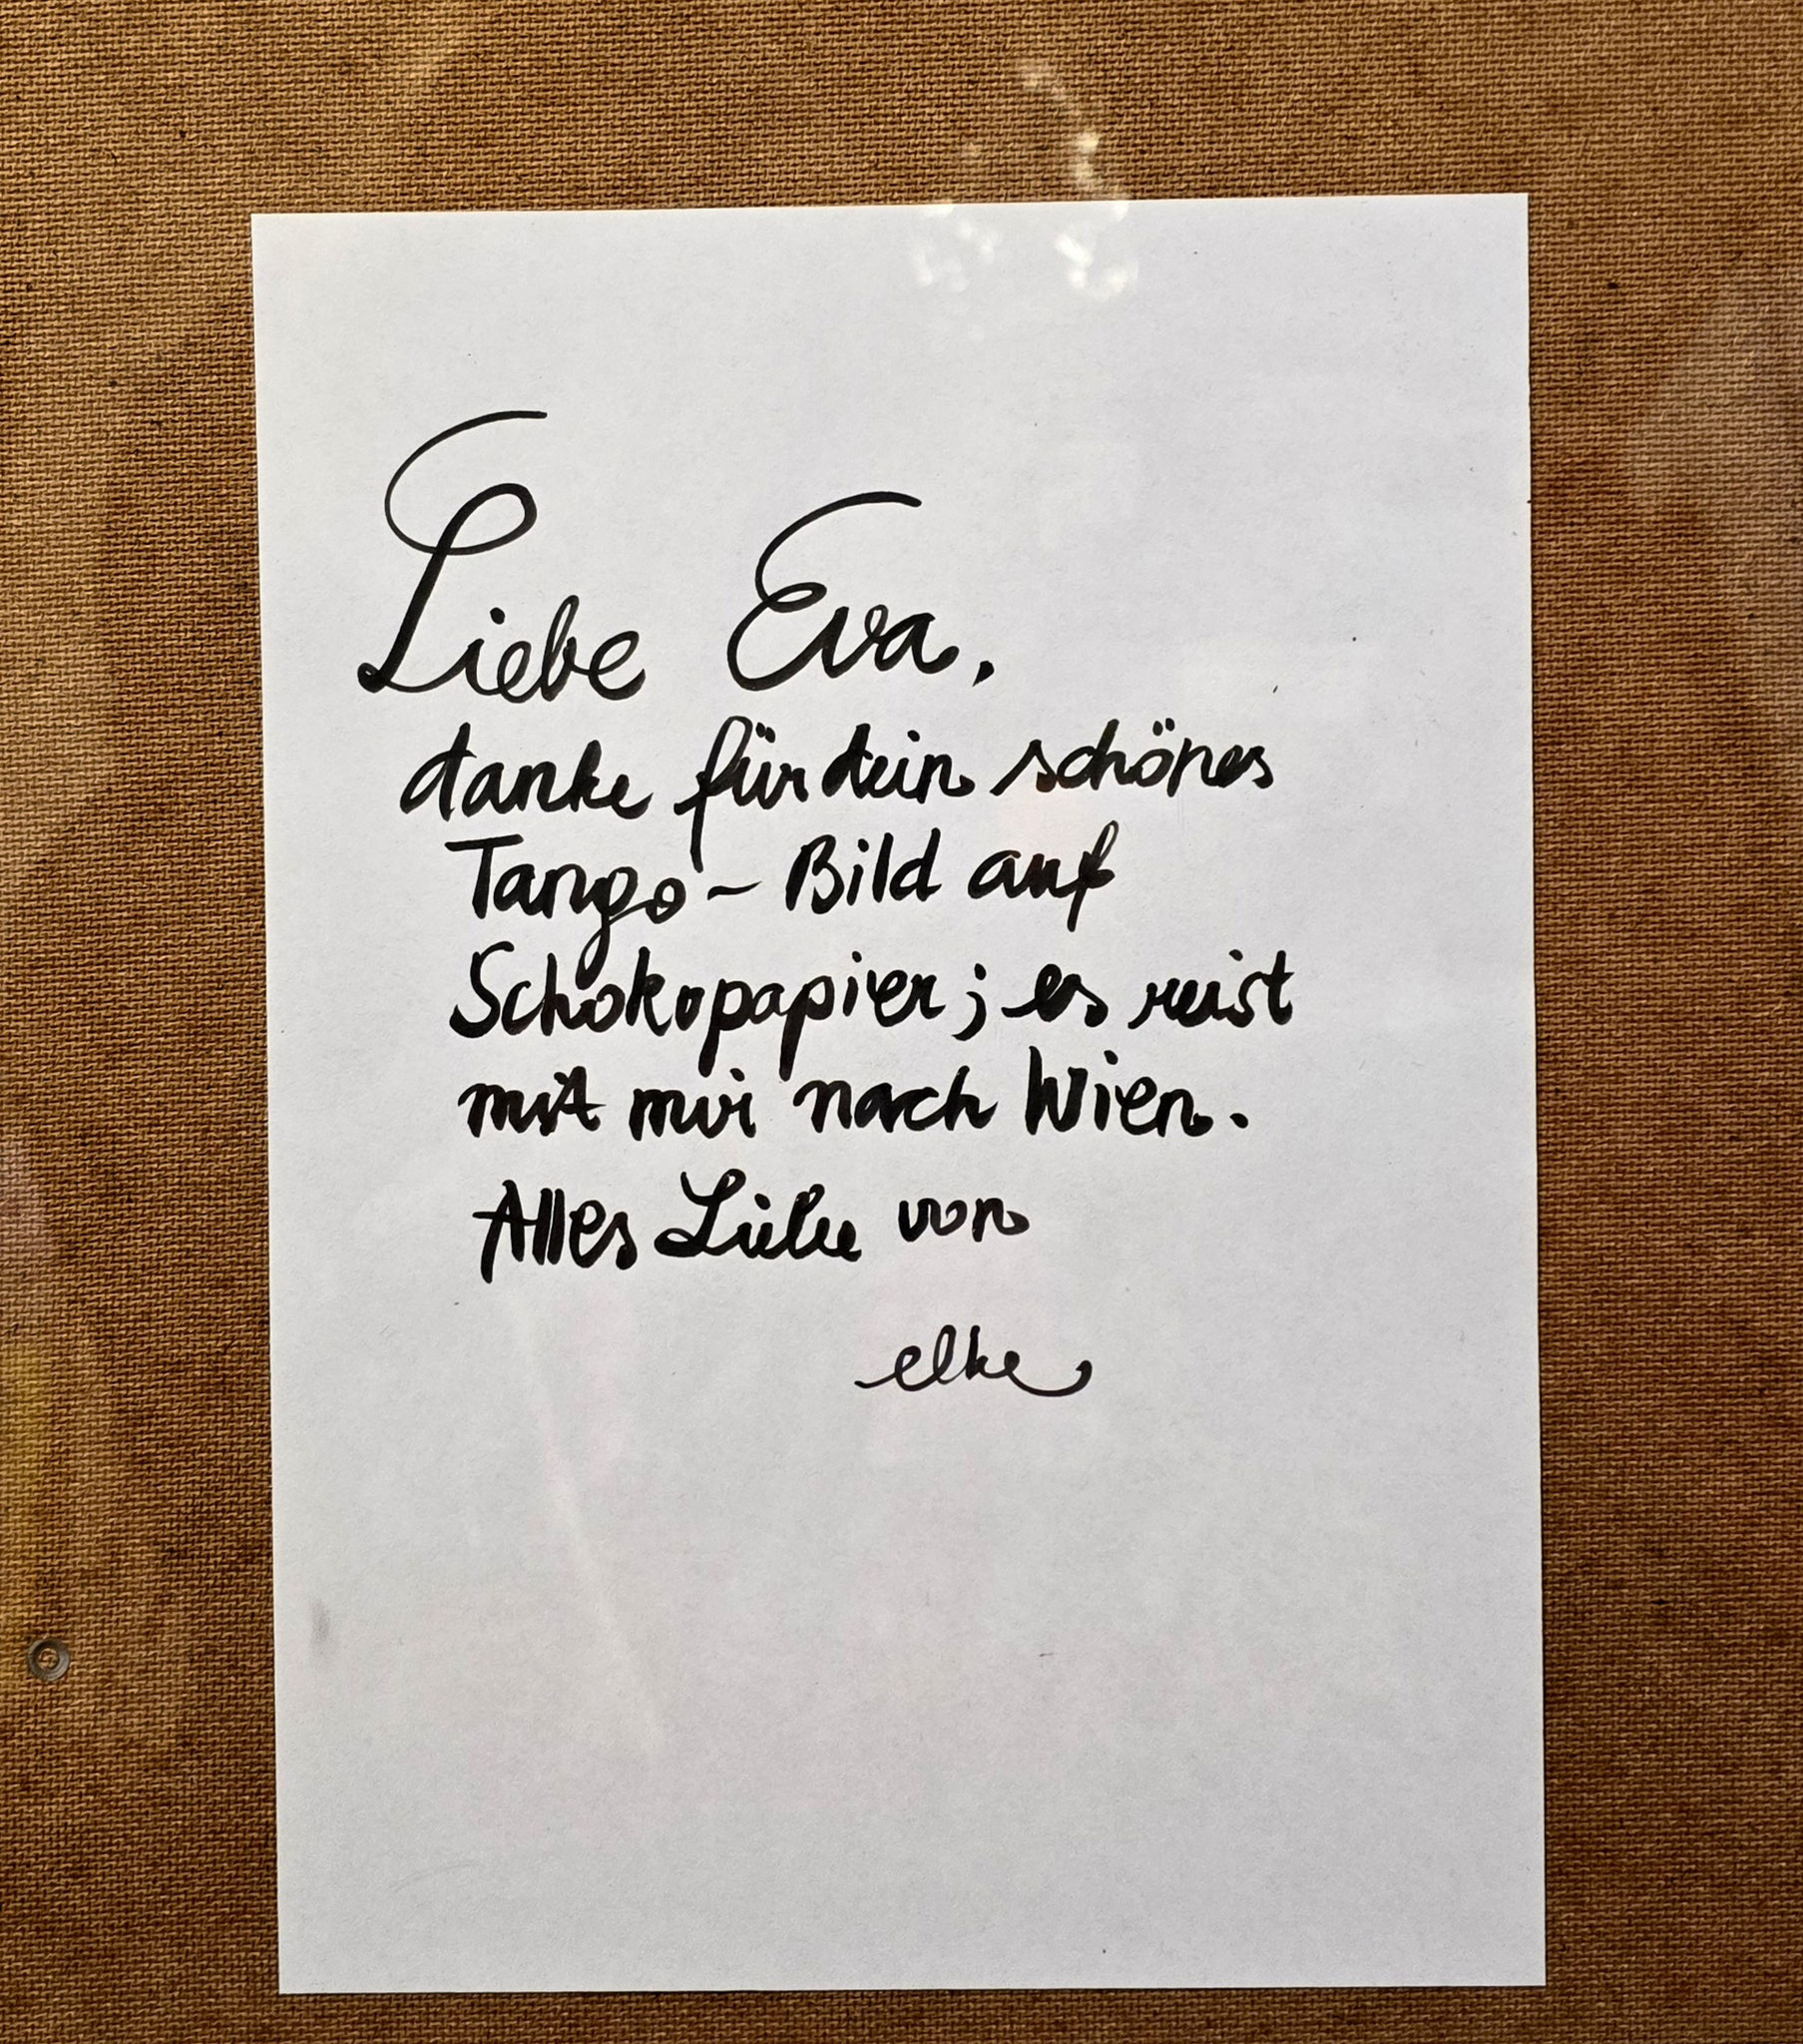 Liebe Eva,
danke für dein schönes
Tango - Bild auf
Schokopapier; es reist
mit mir nach Wien.
Alles Liebe von
elke